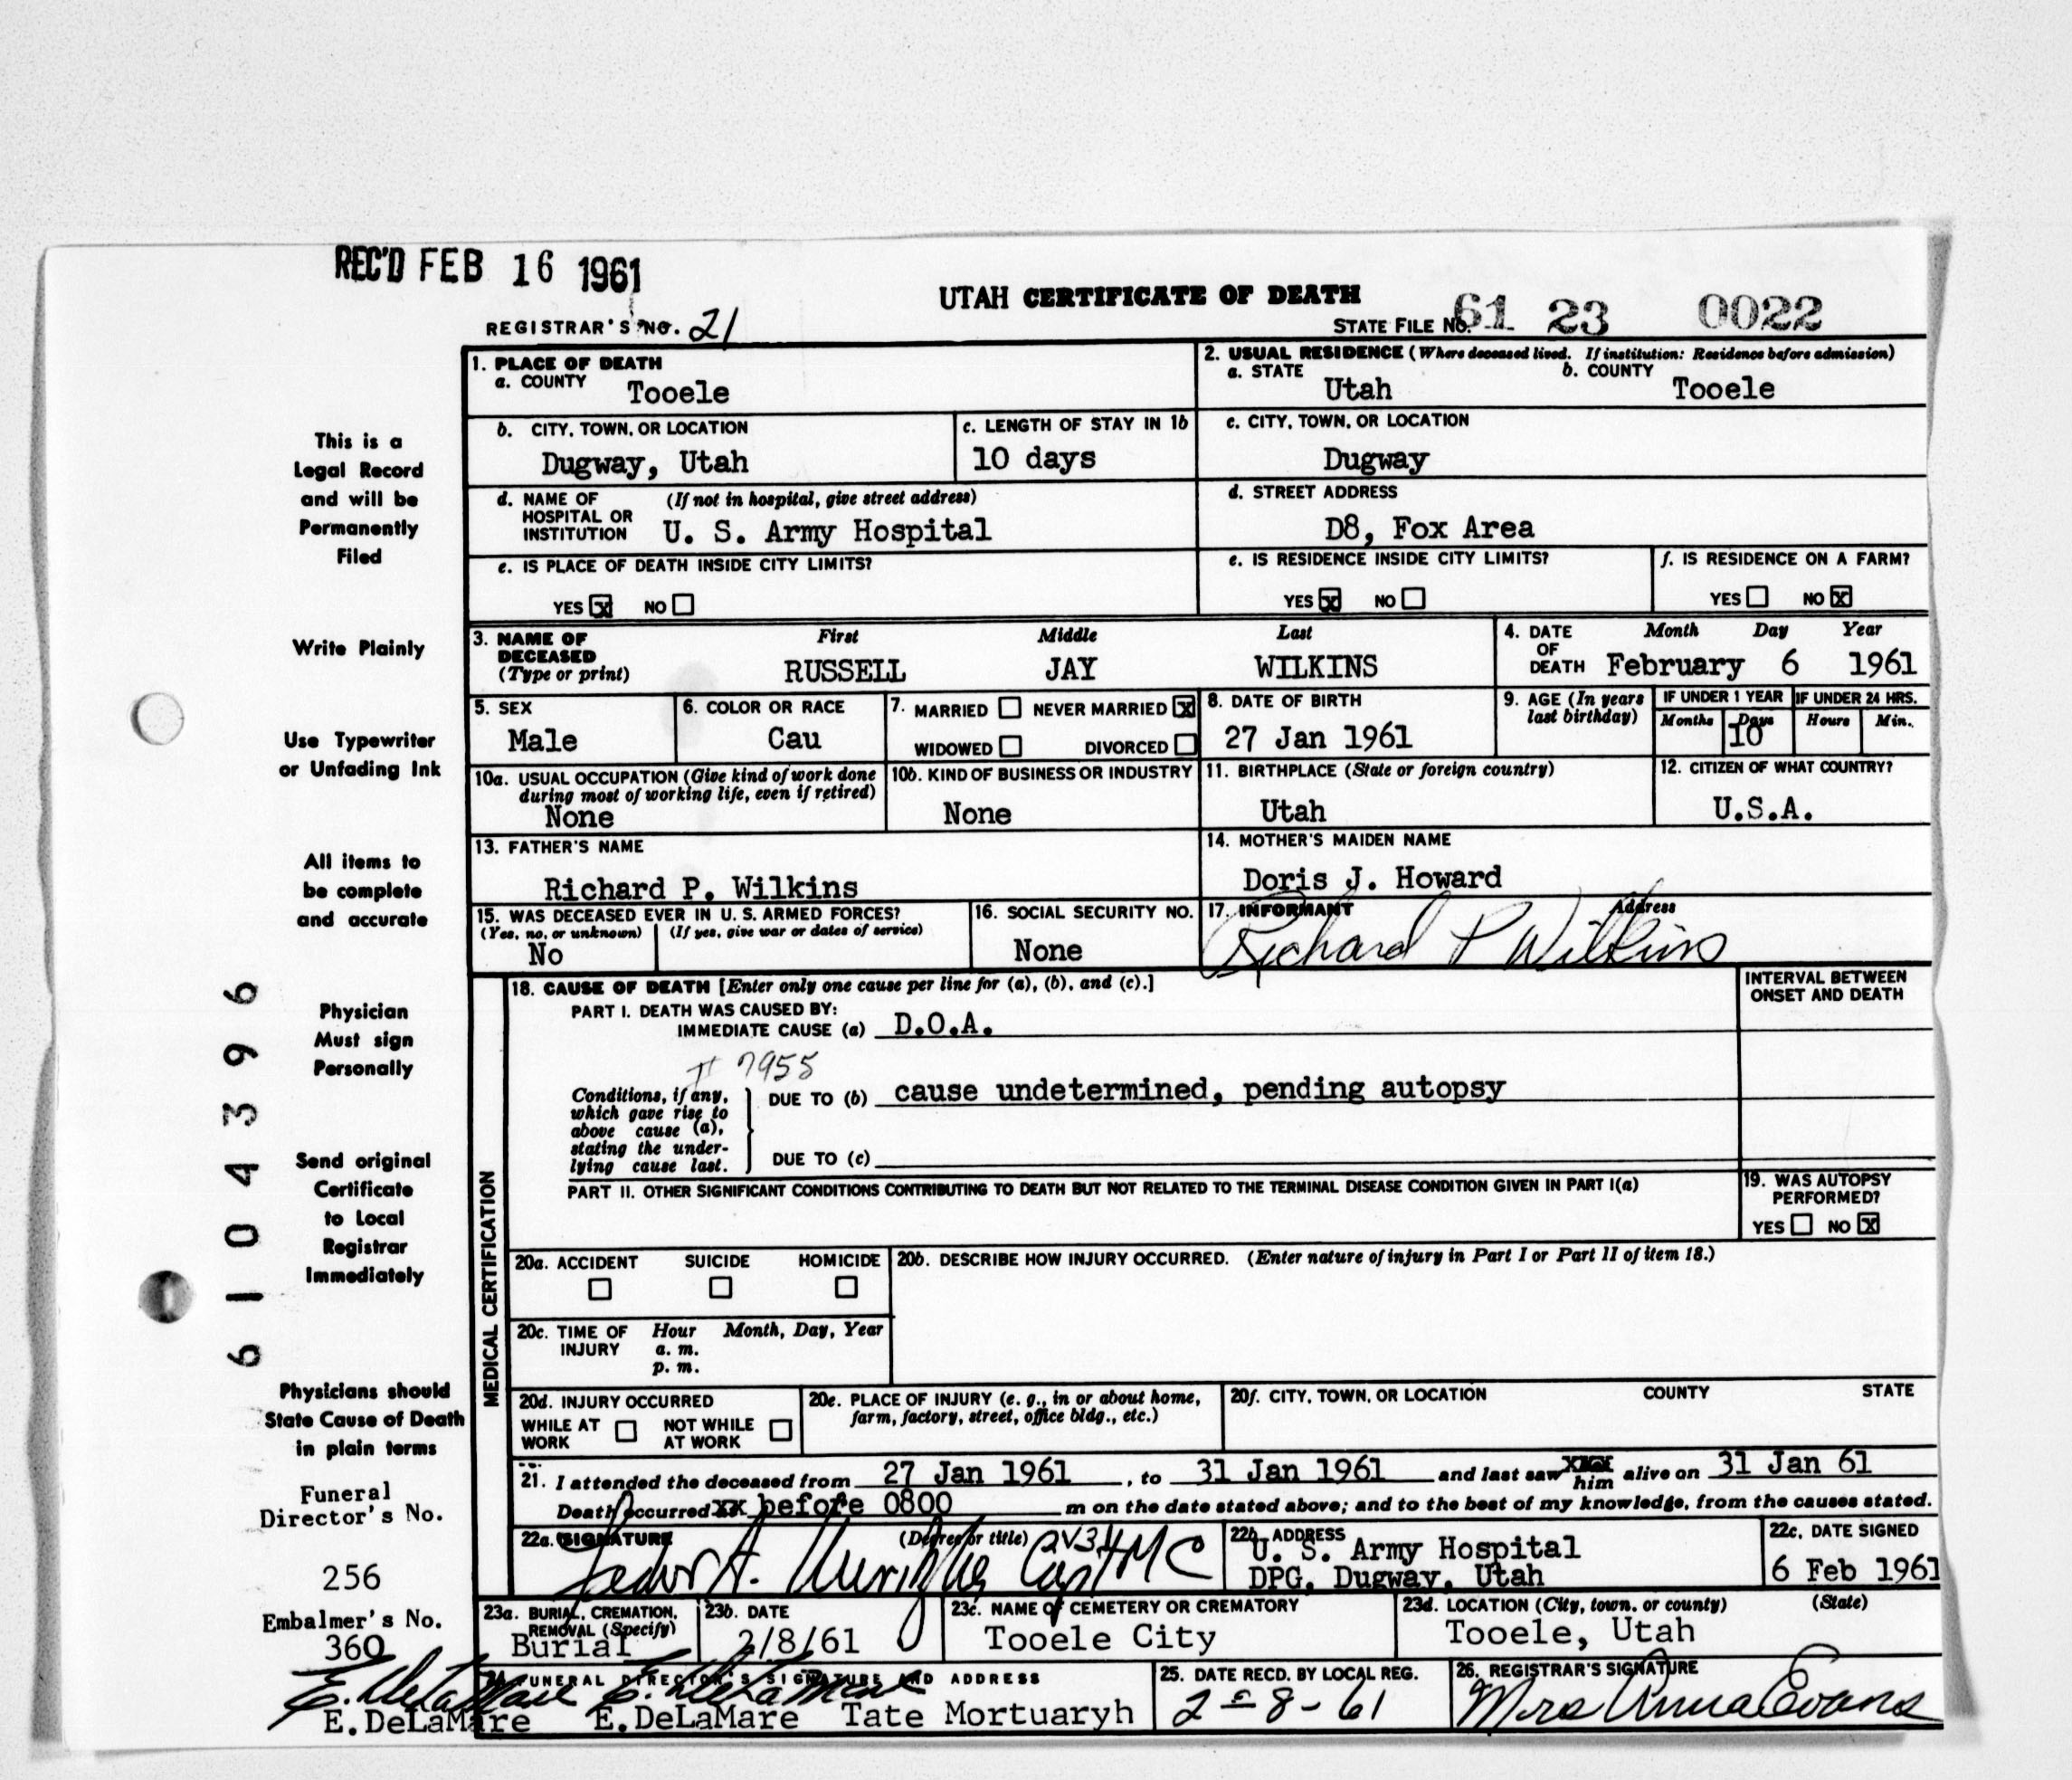 REC'D FEB 16 1961
UTAH CERTIFICATE OF DEATH
REGISTRAR'S NO. 21
STATE FILE NO. 61 23 0022
This is a
Legal Record
and will be
Permanently
Filed
Write Plainly
Use Typewriter
or Unfading Ink
All items to
be complete
and accurate
Physician
Must sign
Personally
Send original
Certificate
to Local
Registrar
Immediately
Physicians should
State Cause of Death
in plain terms
Funeral
Director's No.
256
Embalmer's No.
360
E. DeLaMare
E.DeLaMare
6104396
1. PLACE OF DEATH
a. COUNTY Tooele
2. USUAL RESIDENCE (Where deceased lived. If institution: Residence before admission)
a. STATE Utah b. COUNTY Tooele
b. CITY, TOWN, OR LOCATION
Dugway, Utah
c. LENGTH OF STAY IN 1b
10 days
c. CITY, TOWN, OR LOCATION
Dugway
d. NAME OF (If not in hospital, give street address)
HOSPITAL OR
INSTITUTION U. S. Army Hospital
d. STREET ADDRESS
D8, Fox Area
e. IS PLACE OF DEATH INSIDE CITY LIMITS?
YES X NO
e. IS RESIDENCE INSIDE CITY LIMITS?
YES X NO
f. IS RESIDENCE ON A FARM?
YES NO X
3. NAME OF
DECEASED
(Type or print)
First Middle Last
RUSSELL JAY WILKINS
4. DATE
OF
DEATH
Month Day Year
February 6 1961
5. SEX
Male
6. COLOR OR RACE
Cau
7. MARRIED NEVER MARRIED X
WIDOWED DIVORCED
8. DATE OF BIRTH
27 Jan 1961
9. AGE (In years
last birthday)
IF UNDER 1 YEAR
Months Days
10
IF UNDER 24 HRS.
Hours Min.
10a. USUAL OCCUPATION (Give kind of work done
during most of working life, even if retired)
None
10b. KIND OF BUSINESS OR INDUSTRY
None
11. BIRTHPLACE (State or foreign country)
Utah
12. CITIZEN OF WHAT COUNTRY?
U.S.A.
13. FATHER'S NAME
Richard P. Wilkins
14. MOTHER'S MAIDEN NAME
Doris J. Howard
15. WAS DECEASED EVER IN U. S. ARMED FORCES?
(Yes, no, or unknown) (If yes, give war or dates of service)
No
16. SOCIAL SECURITY NO.
None
17. INFORMANT Address
Richard P Wilkins
MEDICAL CERTIFICATION
18. CAUSE OF DEATH [Enter only one cause per line for (a), (b), and (c).]
PART I. DEATH WAS CAUSED BY:
IMMEDIATE CAUSE (a) D.O.A.
7955
Conditions, if any,
which gave rise to
above cause (a),
stating the under-
lying cause last.
DUE TO (b) cause undetermined, pending autopsy
DUE TO (c)
INTERVAL BETWEEN
ONSET AND DEATH
PART II. OTHER SIGNIFICANT CONDITIONS CONTRIBUTING TO DEATH BUT NOT RELATED TO THE TERMINAL DISEASE CONDITION GIVEN IN PART I(a)
19. WAS AUTOPSY
PERFORMED?
YES NO X
20a. ACCIDENT SUICIDE HOMICIDE
20b. DESCRIBE HOW INJURY OCCURRED. (Enter nature of injury in Part I or Part II of item 18.)
20c. TIME OF Hour Month, Day, Year
INJURY a. m.
p. m.
20d. INJURY OCCURRED
WHILE AT NOT WHILE
WORK AT WORK
20e. PLACE OF INJURY (e. g., in or about home,
farm, factory, street, office bldg., etc.)
20f. CITY, TOWN, OR LOCATION COUNTY STATE
21. I attended the deceased from 27 Jan 1961, to 31 Jan 1961 and last saw him alive on 31 Jan 61
Death occurred xx before 0800 m on the date stated above; and to the best of my knowledge, from the causes stated.
22a. SIGNATURE (Degree or title)
A. Capt MC
22b. ADDRESS
U. S. Army Hospital
DPG, Dugway, Utah
22c. DATE SIGNED
6 Feb 1961
23a. BURIAL, CREMATION,
REMOVAL (Specify)
Burial
23b. DATE
2/8/61
23c. NAME OF CEMETERY OR CREMATORY
Tooele City
23d. LOCATION (City, town, or county) (State)
Tooele, Utah
24. FUNERAL DIRECTOR'S SIGNATURE AND ADDRESS
E. DeLaMare
E.DeLaMare Tate Mortuaryh
25. DATE RECD. BY LOCAL REG.
2-8-61
26. REGISTRAR'S SIGNATURE
Mrs Anna Evans